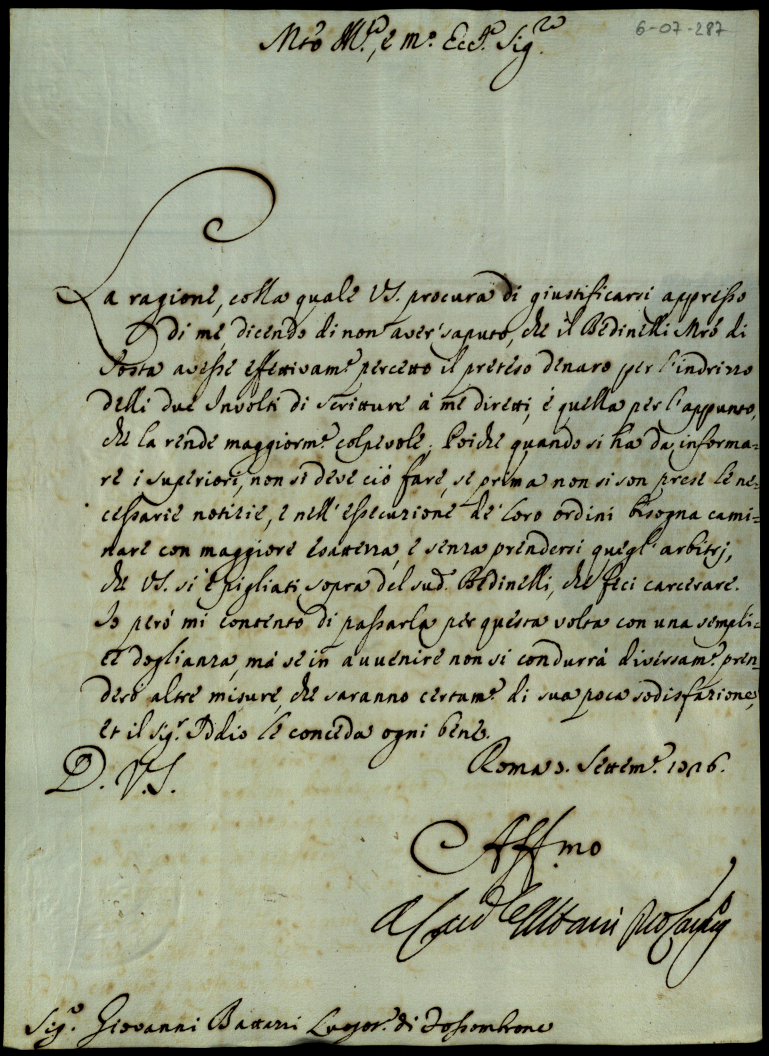 6-07-287
Mto Ill.re, e m.o Ecc.te Sig.re
La ragione, colla quale VS. procura di giustificarsi appresso
di me, dicendo di non aver saputo, che il Bedinelli Mro di
Posta avesse effettivam.e percetto il preteso denaro per l'indrizzo
delli due Involti di scritture à me diretti, è quella per l'appunto,
che la rende maggiorm.e colpevole; Poiche quando si ha da informa=
re i superiori, non si deve ciò fare, se prima non si son prese le ne=
cessarie notizie, e nell'essecuzione de' loro ordini bisogna cami=
nare con maggiore esattezza, e senza prendersi quegl'arbitrj,
che VS. si è pigliati sopra del sud.o Bedinelli, che feci carcerare.
Io però mi contento di passarla per questa volta con una sempli=
ce doglianza, mà se in avvenire non si condurrà diversam.e pren=
derò altre misure, che saranno certam.e di sua poca sodisfazione,
et il Sig.r Iddio le conceda ogni bene.
D. V.S.
Roma 3. Settem.e
Aff.mo
Albani
Sig.r Giovanni Battarri Luogot.e di Fossombrone